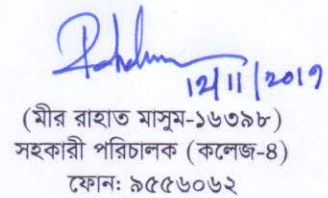 12/11/2019
(মীর রাহাত মাসুম-১৬৩৯৮)
সহকারী পরিচালক (কলেজ-৪)
ফোনঃ ৯৫৫৬০৬২